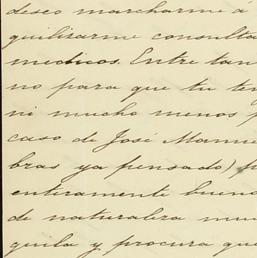 deseo marcharme á
quilizarme consulta
medicos. Entre tan
no para que tu ten
ni mucho menos p
caso de José Manue
bras ya pensado) p
enteramente bueno
de naturaleza muy
quila y procura que